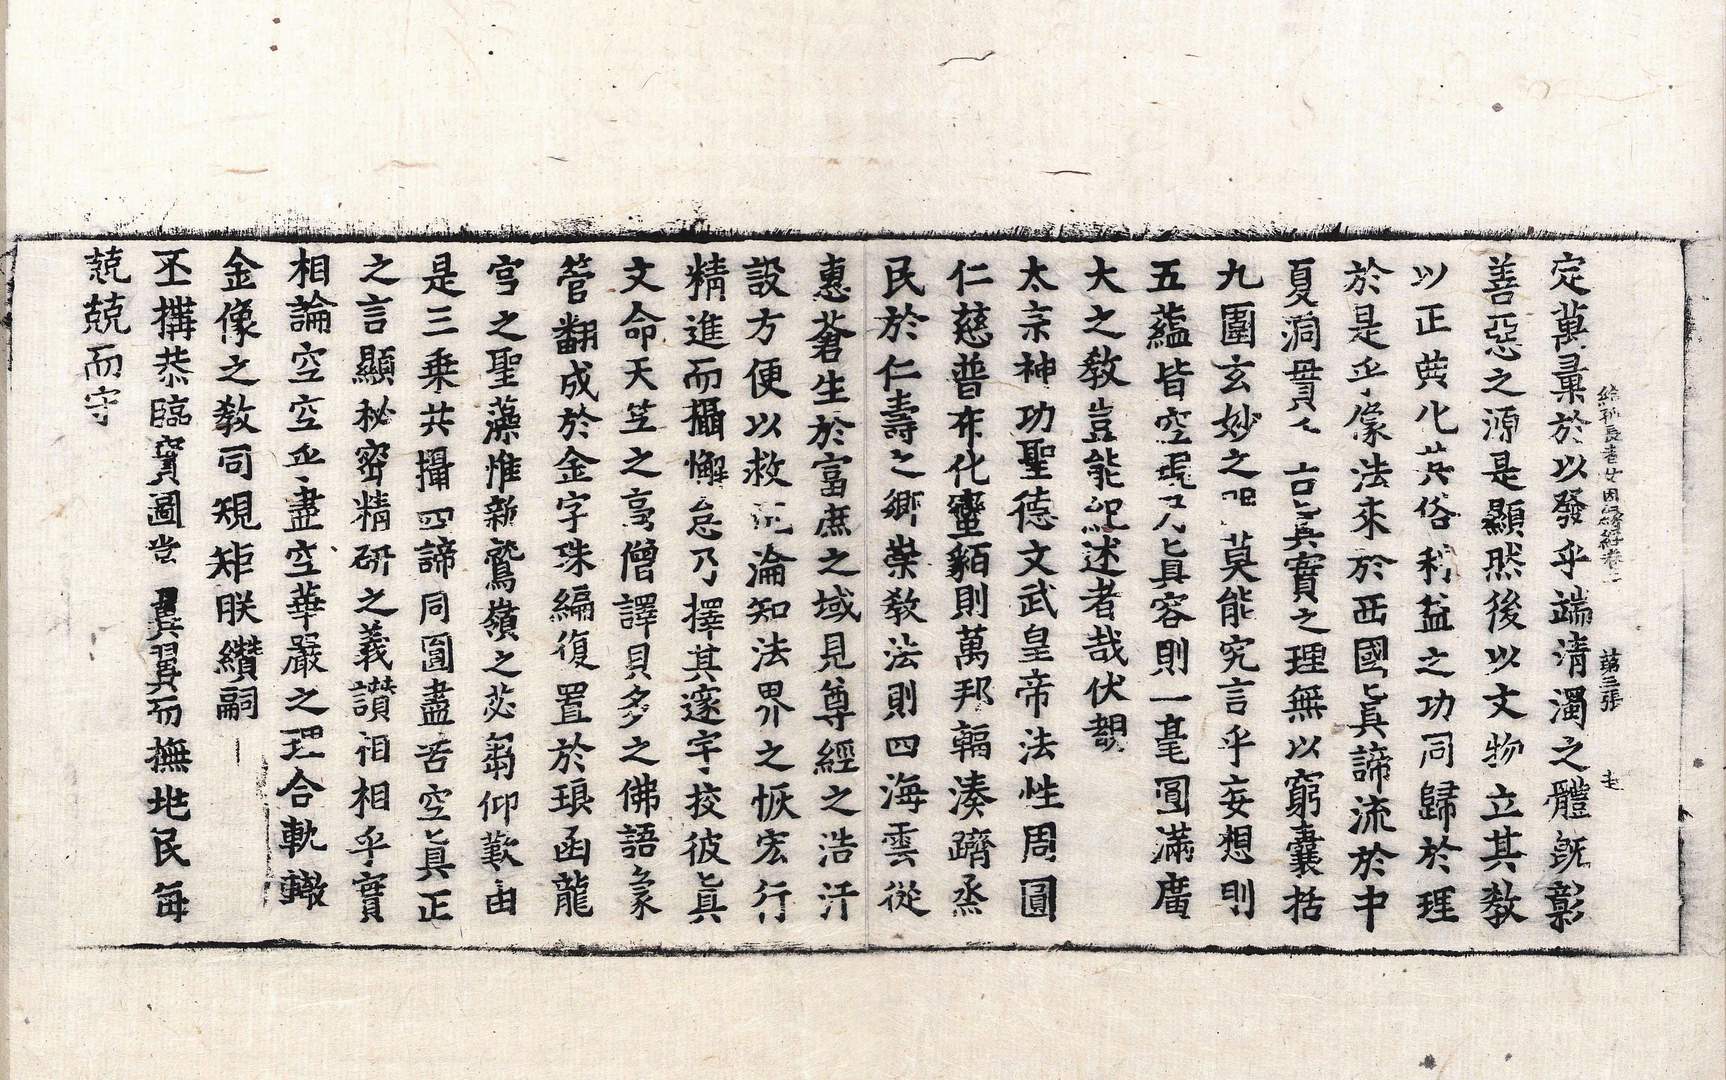 給孤長者女因緣經卷 第三張
定萬彙於以發乎端淸濁之體旣彰
善惡之源是顯然後以文物立其敎
以正典化其俗利益之功同歸於理
於是乎像法來於西國眞諦流於中
夏洞貫 言眞實之理無以窮囊括
九圍玄妙之 莫能究言乎妄想則
五蘊皆空 眞容則一毫圓滿廣
大之敎豈能紀述者哉伏覩
太宗神功聖德文武皇帝法性周圓
仁慈普布化蠻貊則萬邦輻湊躋烝
民於仁壽之鄉崇敎法則四海雲從
惠蒼生於富庶之域見尊經之浩汗
設方便以救 淪知法界之恢宏行
精進而攝懈怠乃擇其邃宇挍彼眞
文命天竺之高僧譯貝多之佛語象
管翻成於金字珠編復置於琅函龍
宮之聖藻惟新鷲嶺之苾芻仰歎由
是三乘共攝四諦同圓盡苦空眞正
之言顯秘密精硏之義讃祖相乎實
相論空空乎盡空華嚴之理合軌轍
金像之敎同規矩朕纘嗣
丕搆恭臨寶圖常 翼翼而撫兆民每
兢兢而守